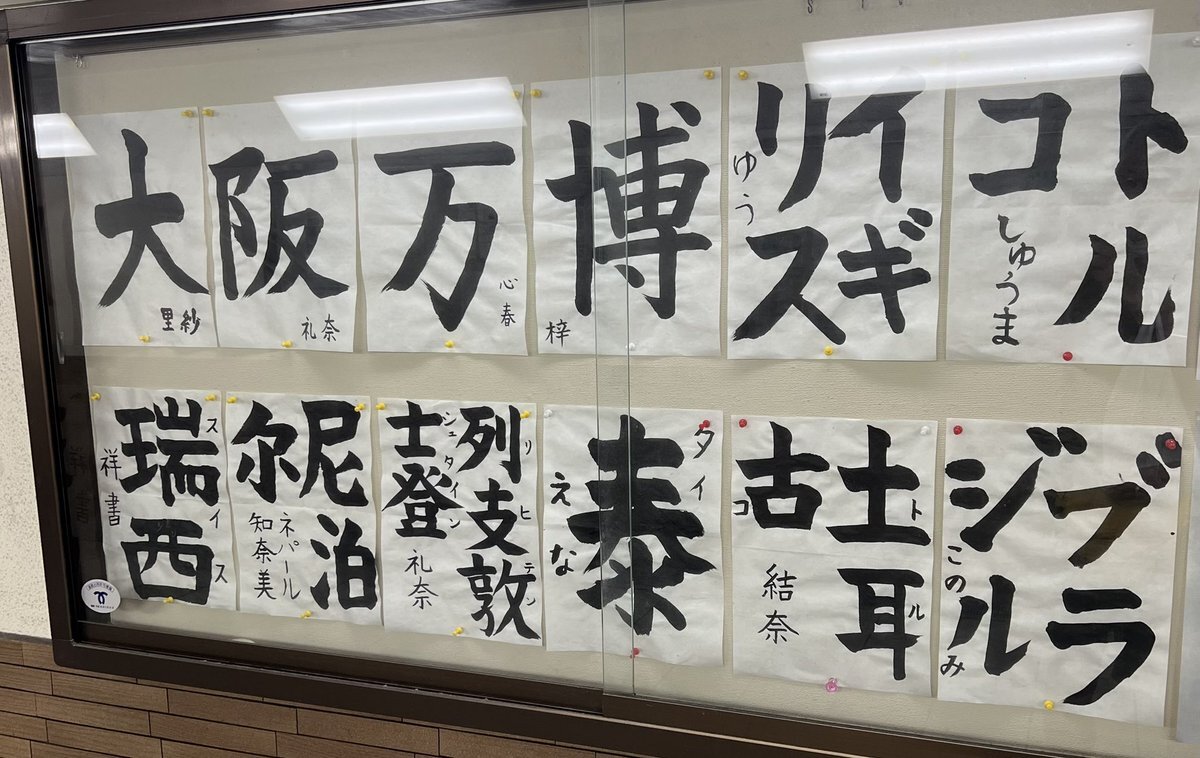 大
里紗
阪
礼奈
万
心春
博
梓
イギ
リス
ゆう
トル
コ
しゅうま
瑞西
スイス
祥書
尼泊
尔
ネパール
知奈美
列支敦
リヒテン
士登
シュタイン
礼奈
泰
タイ
えな
土耳
トル
古
コ
結奈
ブラ
ジル
このみ